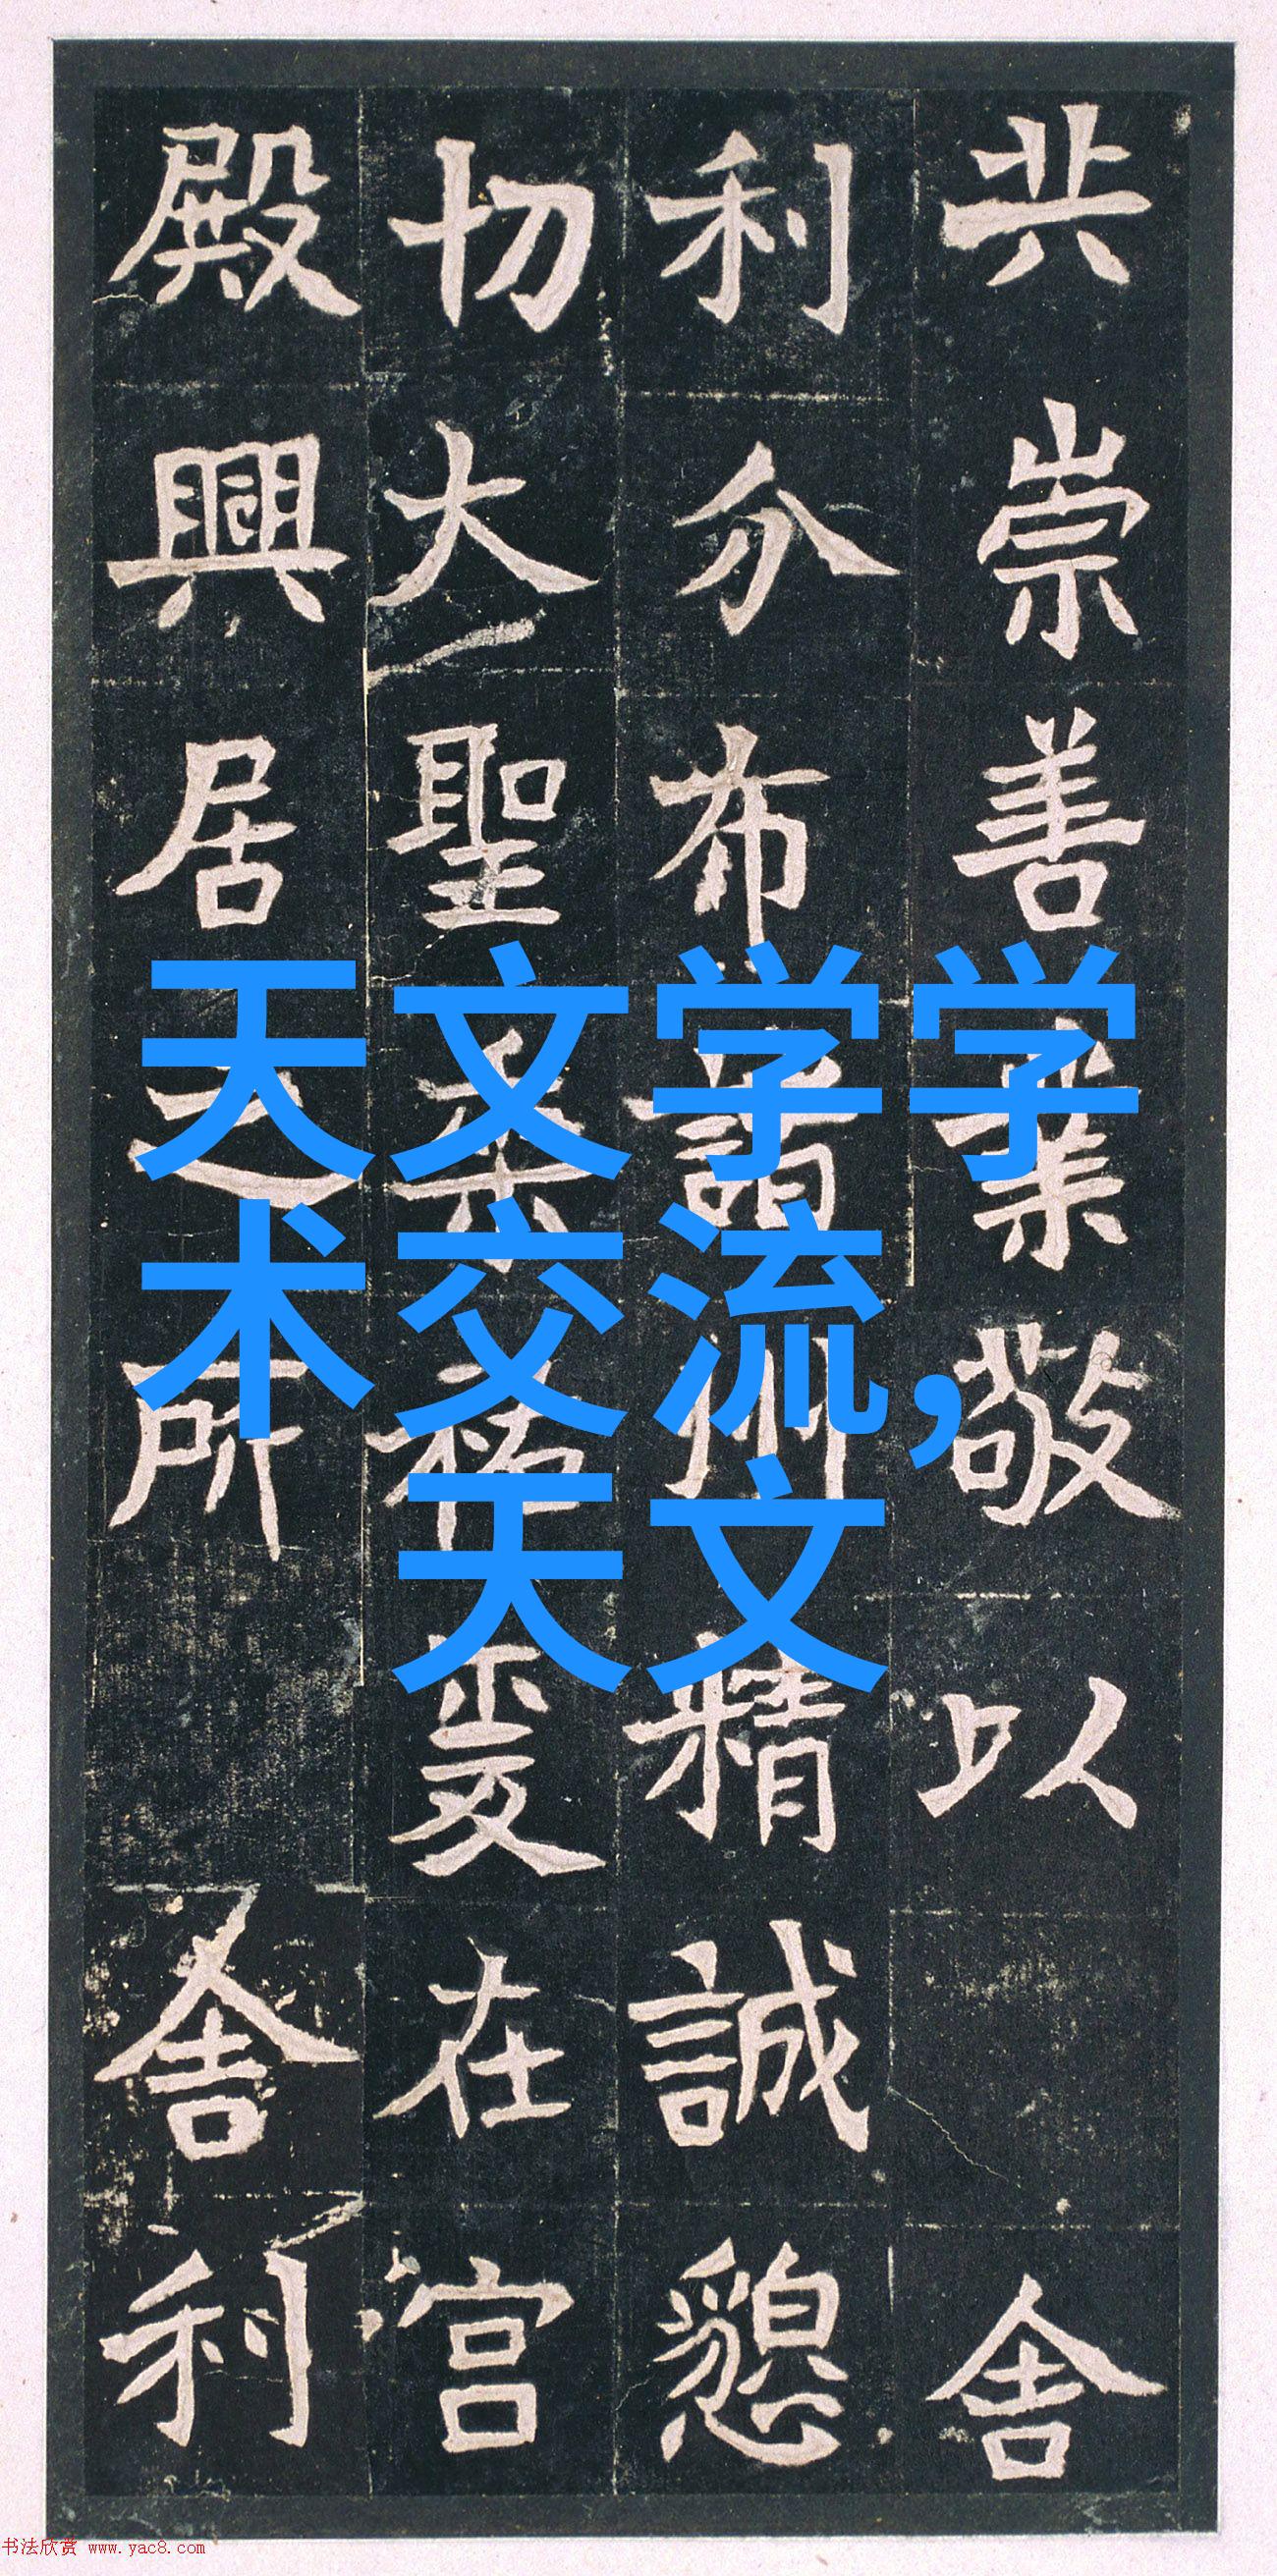 共崇善業敬以 舍
利分布諸州精誠懇
切大聖垂祐爰在宫
殿興居之所 舍利
天文学学
术交流，
天文
书法欣赏 www.yac8.com